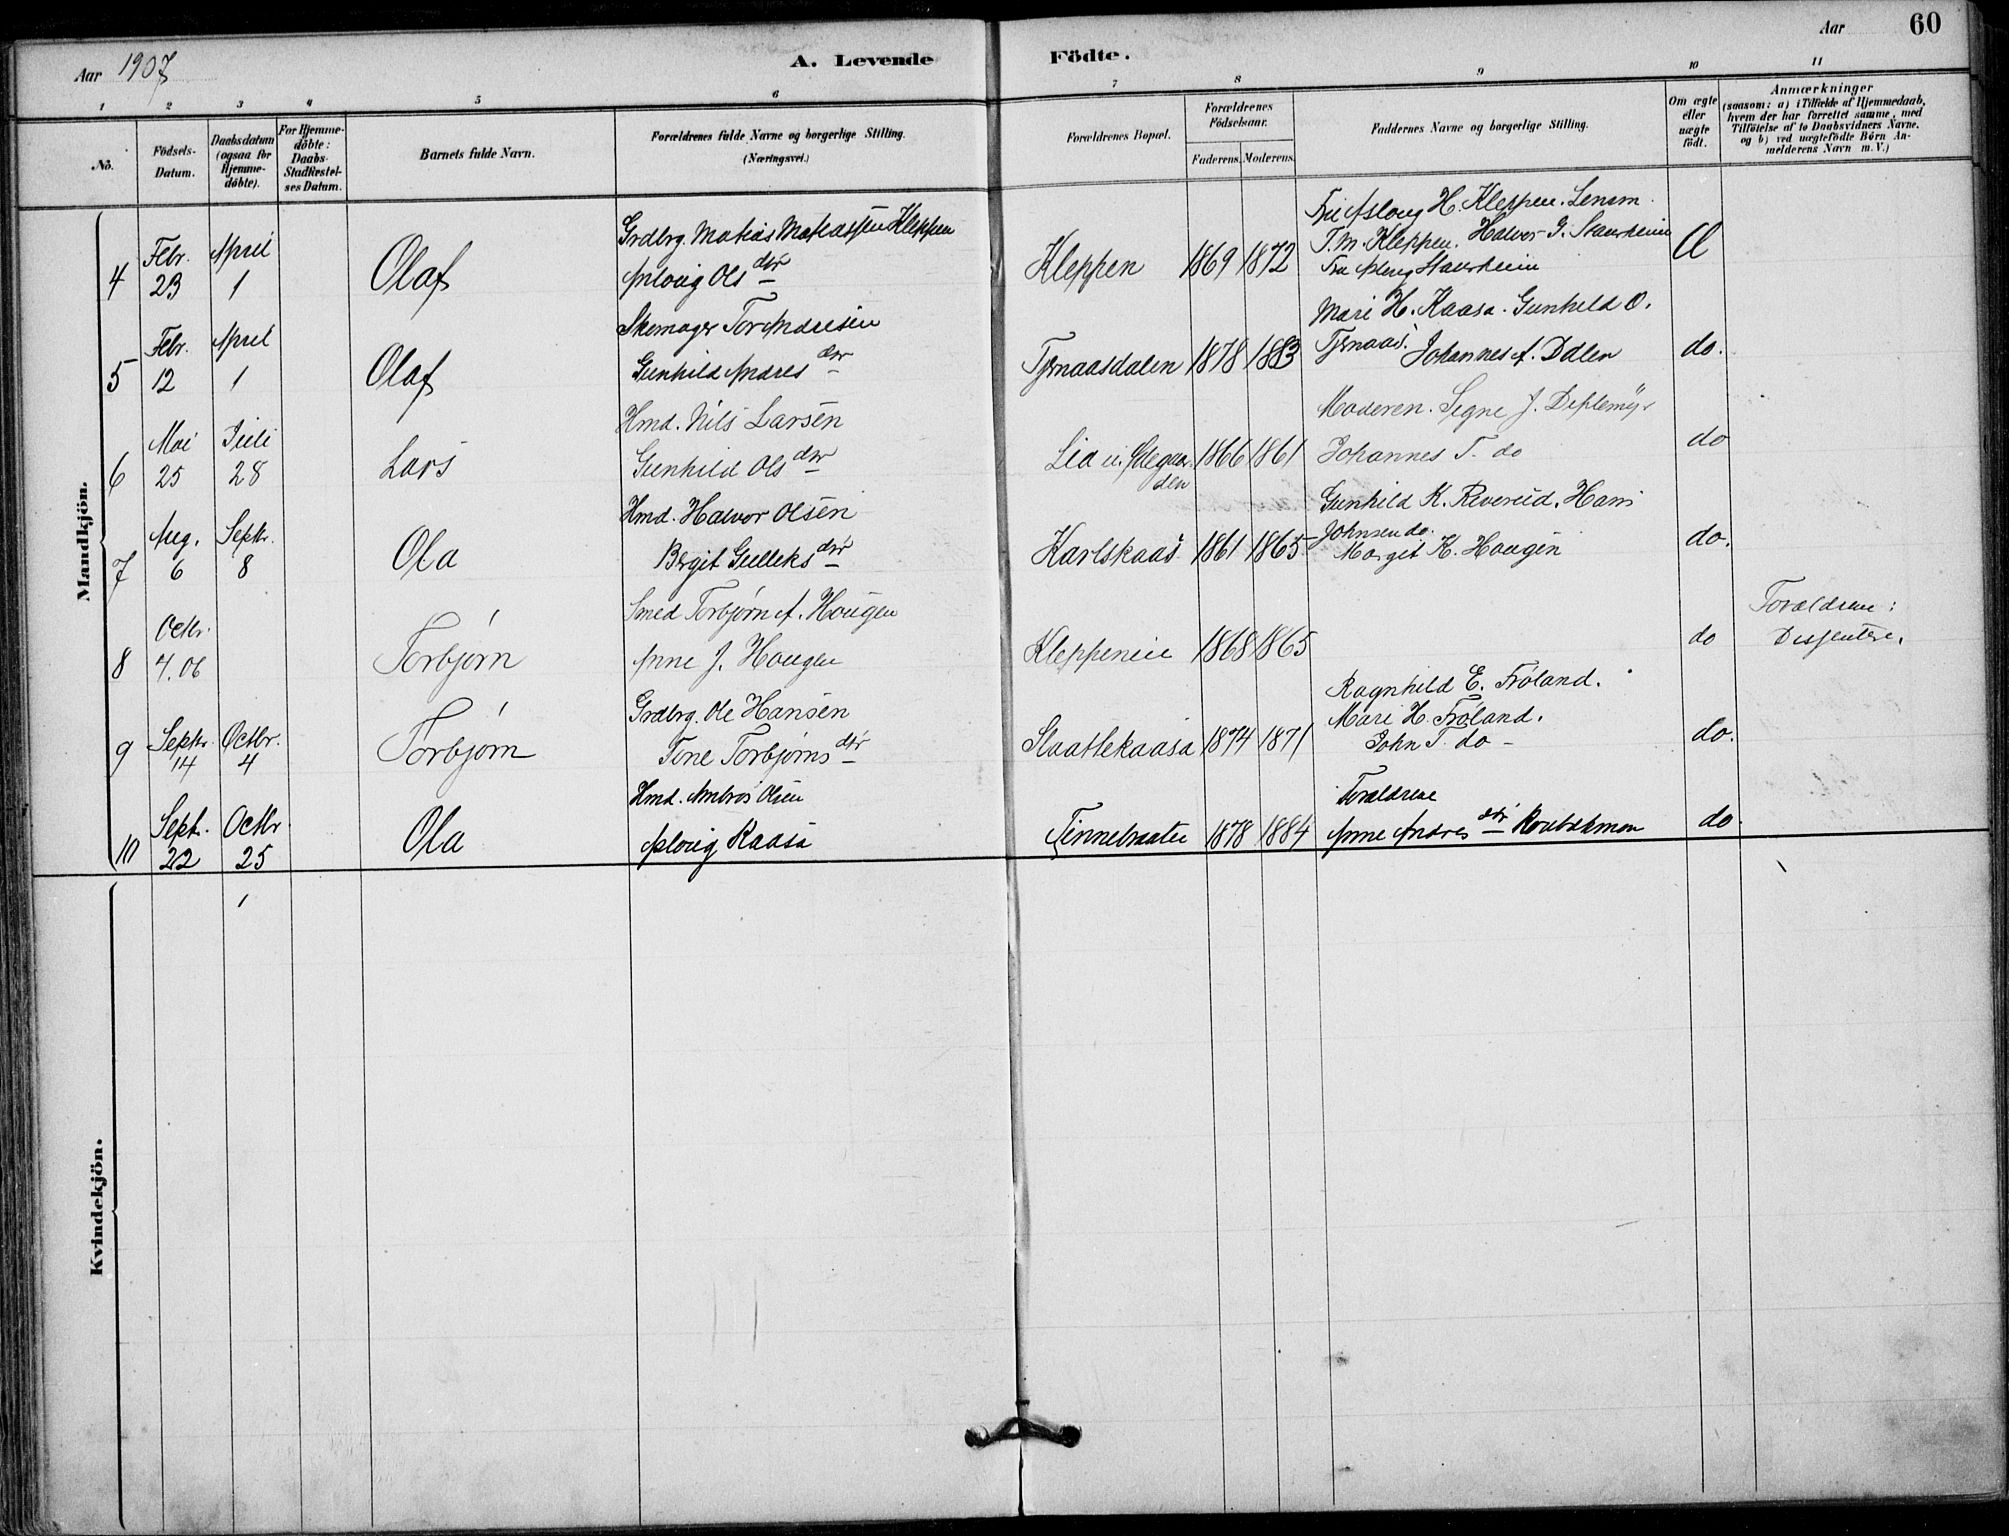 Aar 1907
A. Levende Födte.
Aar
60
1 2 3 4 5 6 7 8 9 10 11
No.
Födsels-Datum.
Daabsdatum (ogsaa for Hjemmedöbte).
For Hjemmedöbte: Daabs-Stadfæstelses Datum.
Barnets fulde Navn.
Forældrenes fulde Navne og borgerlige Stilling.
(Næringsvei.)
Forældrenes Bopæl.
Forældrenes Födselsaar.
Faderens. Moderens.
Faddernes Navne og borgerlige Stilling.
Om ægte eller uægte födt.
Anmærkninger
(saasom: a) i Tilfælde af Hjemmedaab, hvem der har forrettet samme, med Tilföielse af to Daabsvidners Navne, og b) ved uægtefödte Börn Anmelderens Navn m. V.)
Mandkjön.
4 Febr. 23 April 1 Olaf
Grdbrg. Matias Matiassen Kleppen
Asloug Ols dtr
Kleppen 1869 1872
Fru Asloug H. Kleppen. Lensm.
T. M. Kleppen. Halvor G. Staurheim
Fru Asloug Staurheim
Æ
5 Febr. 12 April 1 Olaf
Skomager Tor Andresen
Gunhild Andres dtr
Tjønaasdalen 1878 1883
Mari H. Kaasa. Gunhild O.
Tjønaas. Johannes A. Dalen
do.
6 Mai 25 Juli 28 Lars
Hmd. Nils Larsen
Gunhild Ols dtr
Lia u. 1866 1861
Moderen. Signe J. Deplemyr
Johannes T. do
do
7 Aug. 6 Septr. 8 Ola
Hmd. Halvor Olsen
Birgit Gulleks dtr
Karlskaas 1861 1865
Gunhild K. Reverud. Hans
Johnsen do.
Margit K. Hougen
do.
8 Octbr. 4. 06 Torbjørn
Smed Torbjørn A. Hougen
Anne J. Hougen
Kleppeneie 1868 1865
do
Forældrene:
Dissentere.
9 Septr. 14 Octbr. 4 Torbjørn
Grdbrg. Ole Hansen
Tone Torbjørns dtr
Slaattekaasa 1874 1871
Ragnhild E. Frøland.
Mari H. Frøland.
John T. do
do.
10 Sept. 22 Octbr 25 Ola
Hmd. Ambros Olsen
Asloug Kaasa
Tinnebraatei 1878 1884
Forældrene
Anne Andres dtr
do.
1
Kvindekjön.